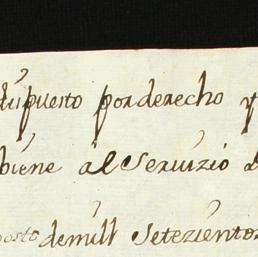 dispuesto por derecho y
biene al Servizio d
osto de mill Setezientos